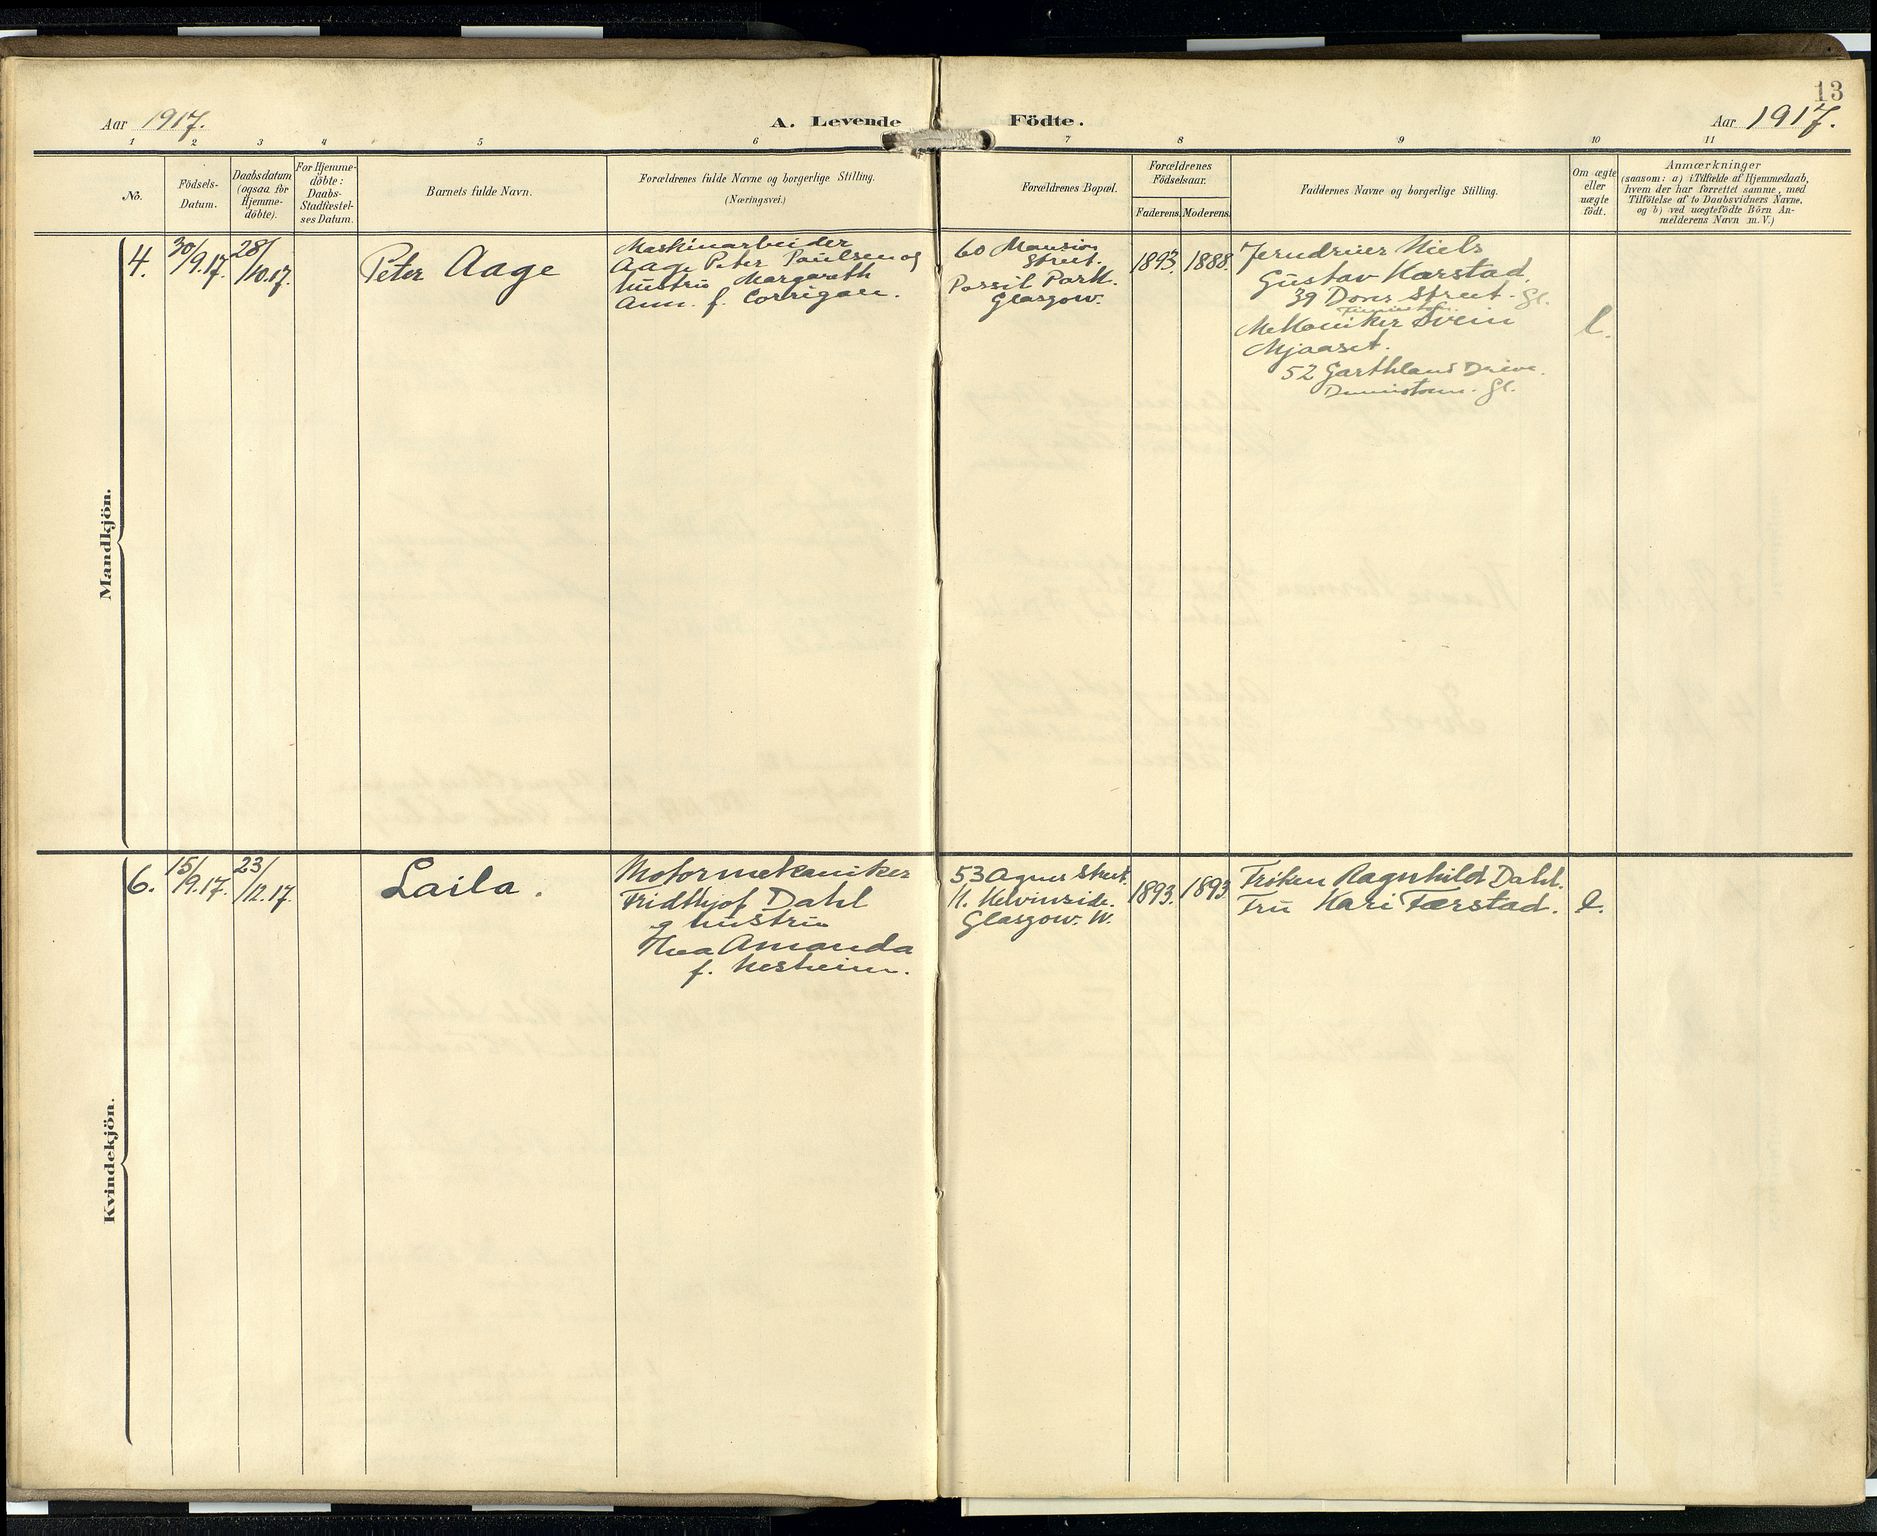 13
Aar 1917.
A. Levende Födte.
Aar 1917.
1 2 3 4 5 6 7 8 9 10 11
No.
Födsels-
Datum.
Daabsdatum
(ogsaa for
Hjemme-
döbte).
For Hjemme-
döbte:
Daabs-
Stadfæstel-
ses Datum.
Barnets fulde Navn.
Forældrenes fulde Navne og borgerlige Stilling.
(Næringsvei.)
Forældrenes Bopæl.
Forældrenes
Födselsaar.
Faderens. Moderens.
Faddernes Navne og borgerlige Stilling.
Om ægte
eller
uægte
födt.
Anmærkninger
(saasom: a) i Tilfælde af Hjemmedaab,
hvem der har forrettet samme, med
Tilföielse af to Daabsvidners Navne,
og b) ved uægtefödte Börn An-
melderens Navn m. V.)
Mandkjön.
4.
30/9.17.
28/10.17.
Peter Aage
Maskinarbeider
Aage Peter Paulsen og
hustru Margareth
Ann. f. Corrigan.
60 Mansion
Street.
Possil Park.
Glasgow.
1893.
1888.
Niels
Gustav Karstad.
39 Street. Gl.
Mekaniker Svein
Mjaaset.
52 Garthland Drive.
Dennistoun. Gl.
Kvindekjön.
6.
15/9.17.
23/12.17.
Laila.
Motormekaniker
Fridthjof Dahl
og hustru
Thea Amanda
f. Nesheim.
53 Agnes Street.
N. Kelvinside.
Glasgow. W.
1893.
1893
Frøken Ragnhild Dahl.
Fru Kari Færstad.